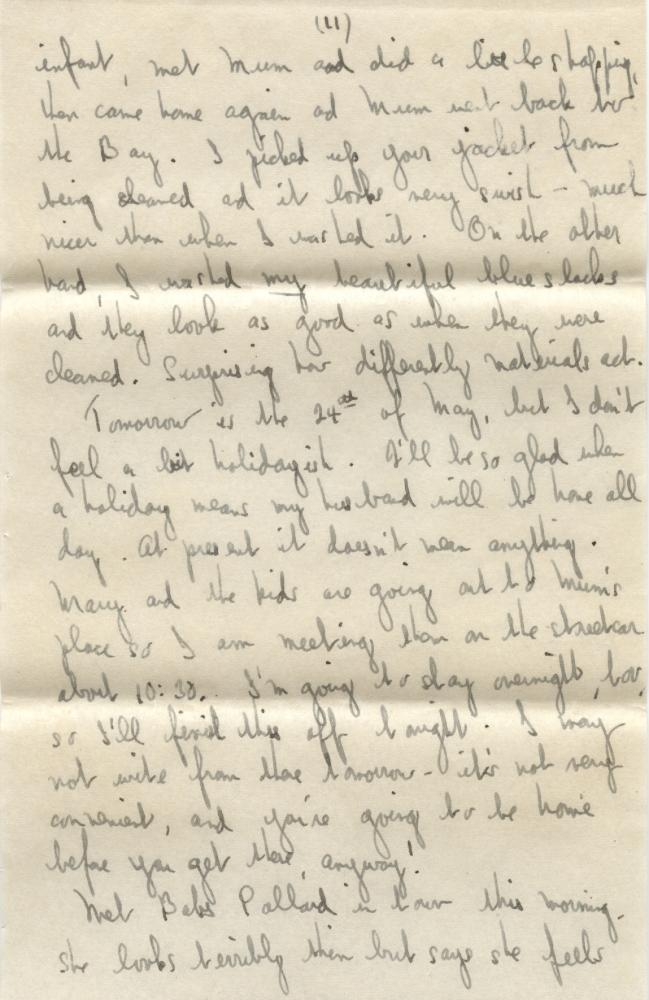 (11)
infant, met Mum and did a little shopping,
then came home again and Mum went back to
the Bay. I picked up your jacket from
being cleaned and it looks very swish - much
nicer than when I washed it. On the other
hand, I washed my beautiful blue slacks
and they look as good as when they were
cleaned. Surprising how differently materials act.
Tomorrow is the 24th of May, but I don't
feel a bit holidayish. I'll be so glad when
a holiday means my husband will be home all
day. At present it doesn't mean anything.
Mary and the kids are going out to Mum's
place so I am meeting them on the streetcar
about 10:30. I'm going to stay overnight, too,
so I'll finish this off tonight. I may
not write from there tomorrow - it's not very
convenient, and you're going to be home
before you get these, anyway!
Met Babs Pollard in town this morning.
She looks terribly thin but says she feels